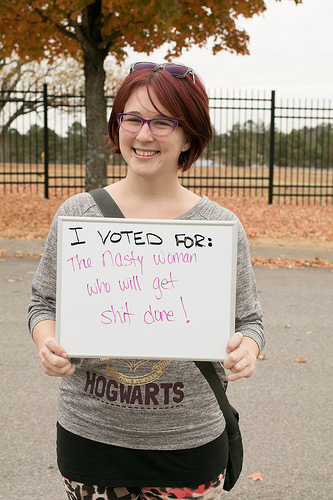 I VOTED FOR:
The nasty woman
who will get
shit done!
HOGWARTS